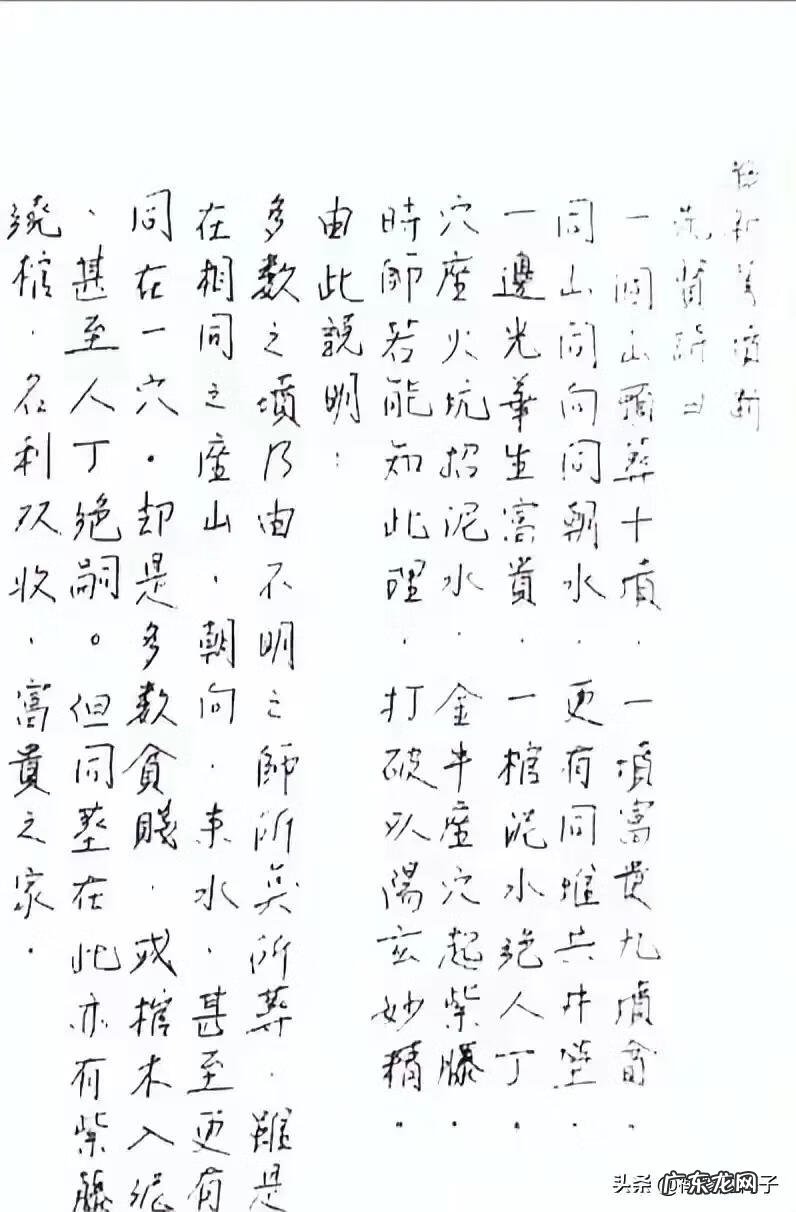 先賢詩曰
一個山頭葬十墳．一墳富貴九墳貧．
同山同向同朝水．更有同堆共井塋．
一邊光華生富貴．一棺泥水絕人丁．
穴座火坑招泥水．金牛座穴起紫藤．
時師若能知此理．打破陰陽玄妙精．
由此說明：
多數之墳乃由不明之師所矣所葬．雖是
在相同之座山．朝向．來水．甚至更有
同在一穴．却是多数貧賤．或棺木入泥
．甚至人丁絕嗣。但同塟在此亦有紫藤
繞棺．名利双收．富貴之家．
头条
广东龙网子